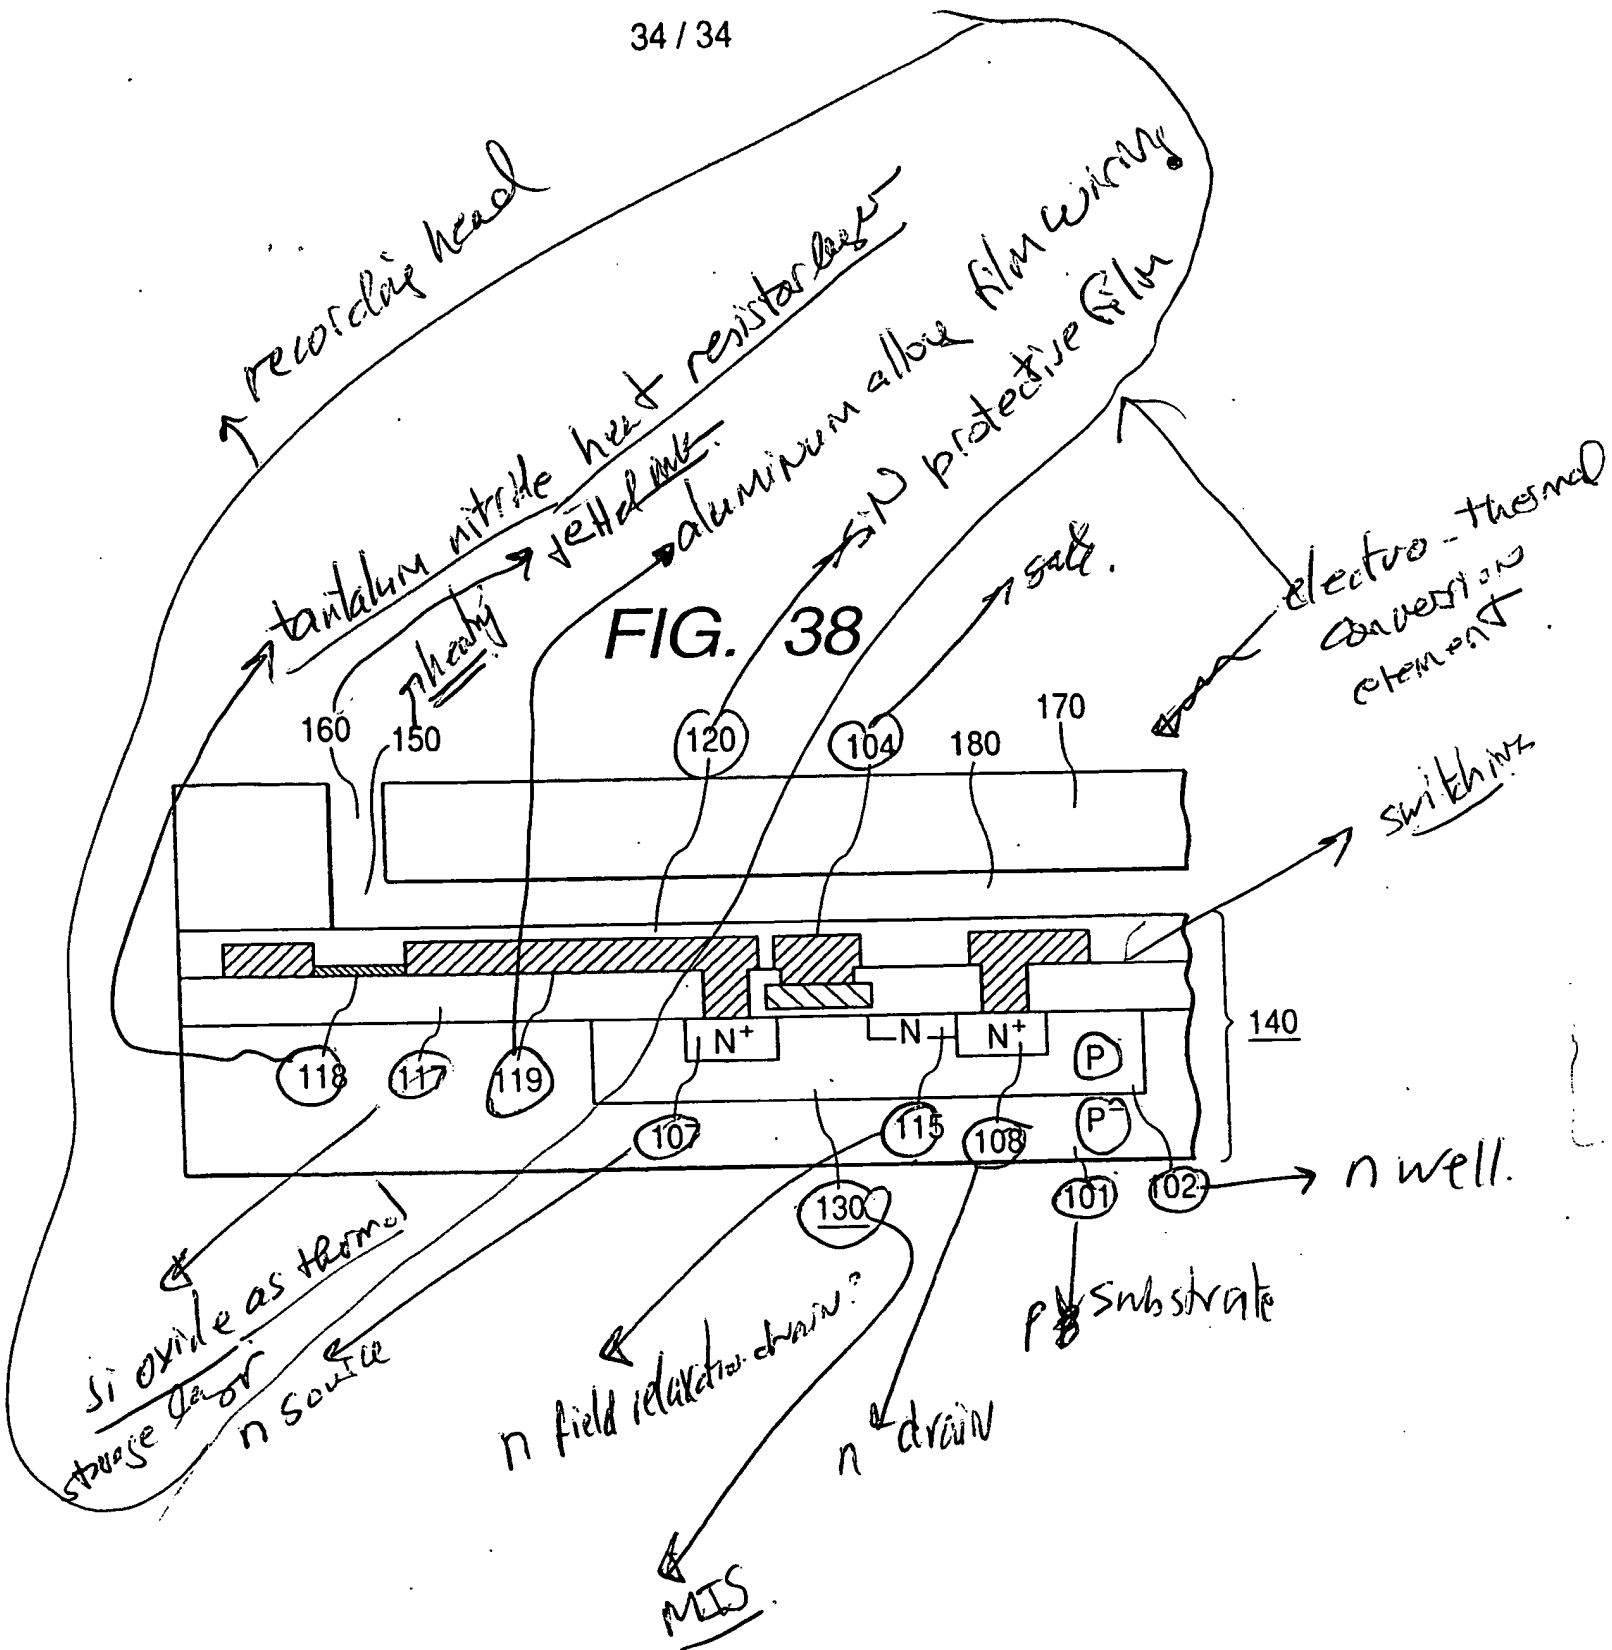 34 / 34
recording head
tantalum nitrite heat resistor layer
jetted ink.
aluminum alloy film wiring
SiN protective film
gate.
heating
FIG. 38
electro-thermal
conversion
element.
switching
160
150
120
104
180
170
140
N+
N
N+
P
P-
118
117
119
107
115
108
130
101
102
n well.
p substrate
si oxide as thermal
storage layor
n source
n field relaxation drain?
n drain
MIS.